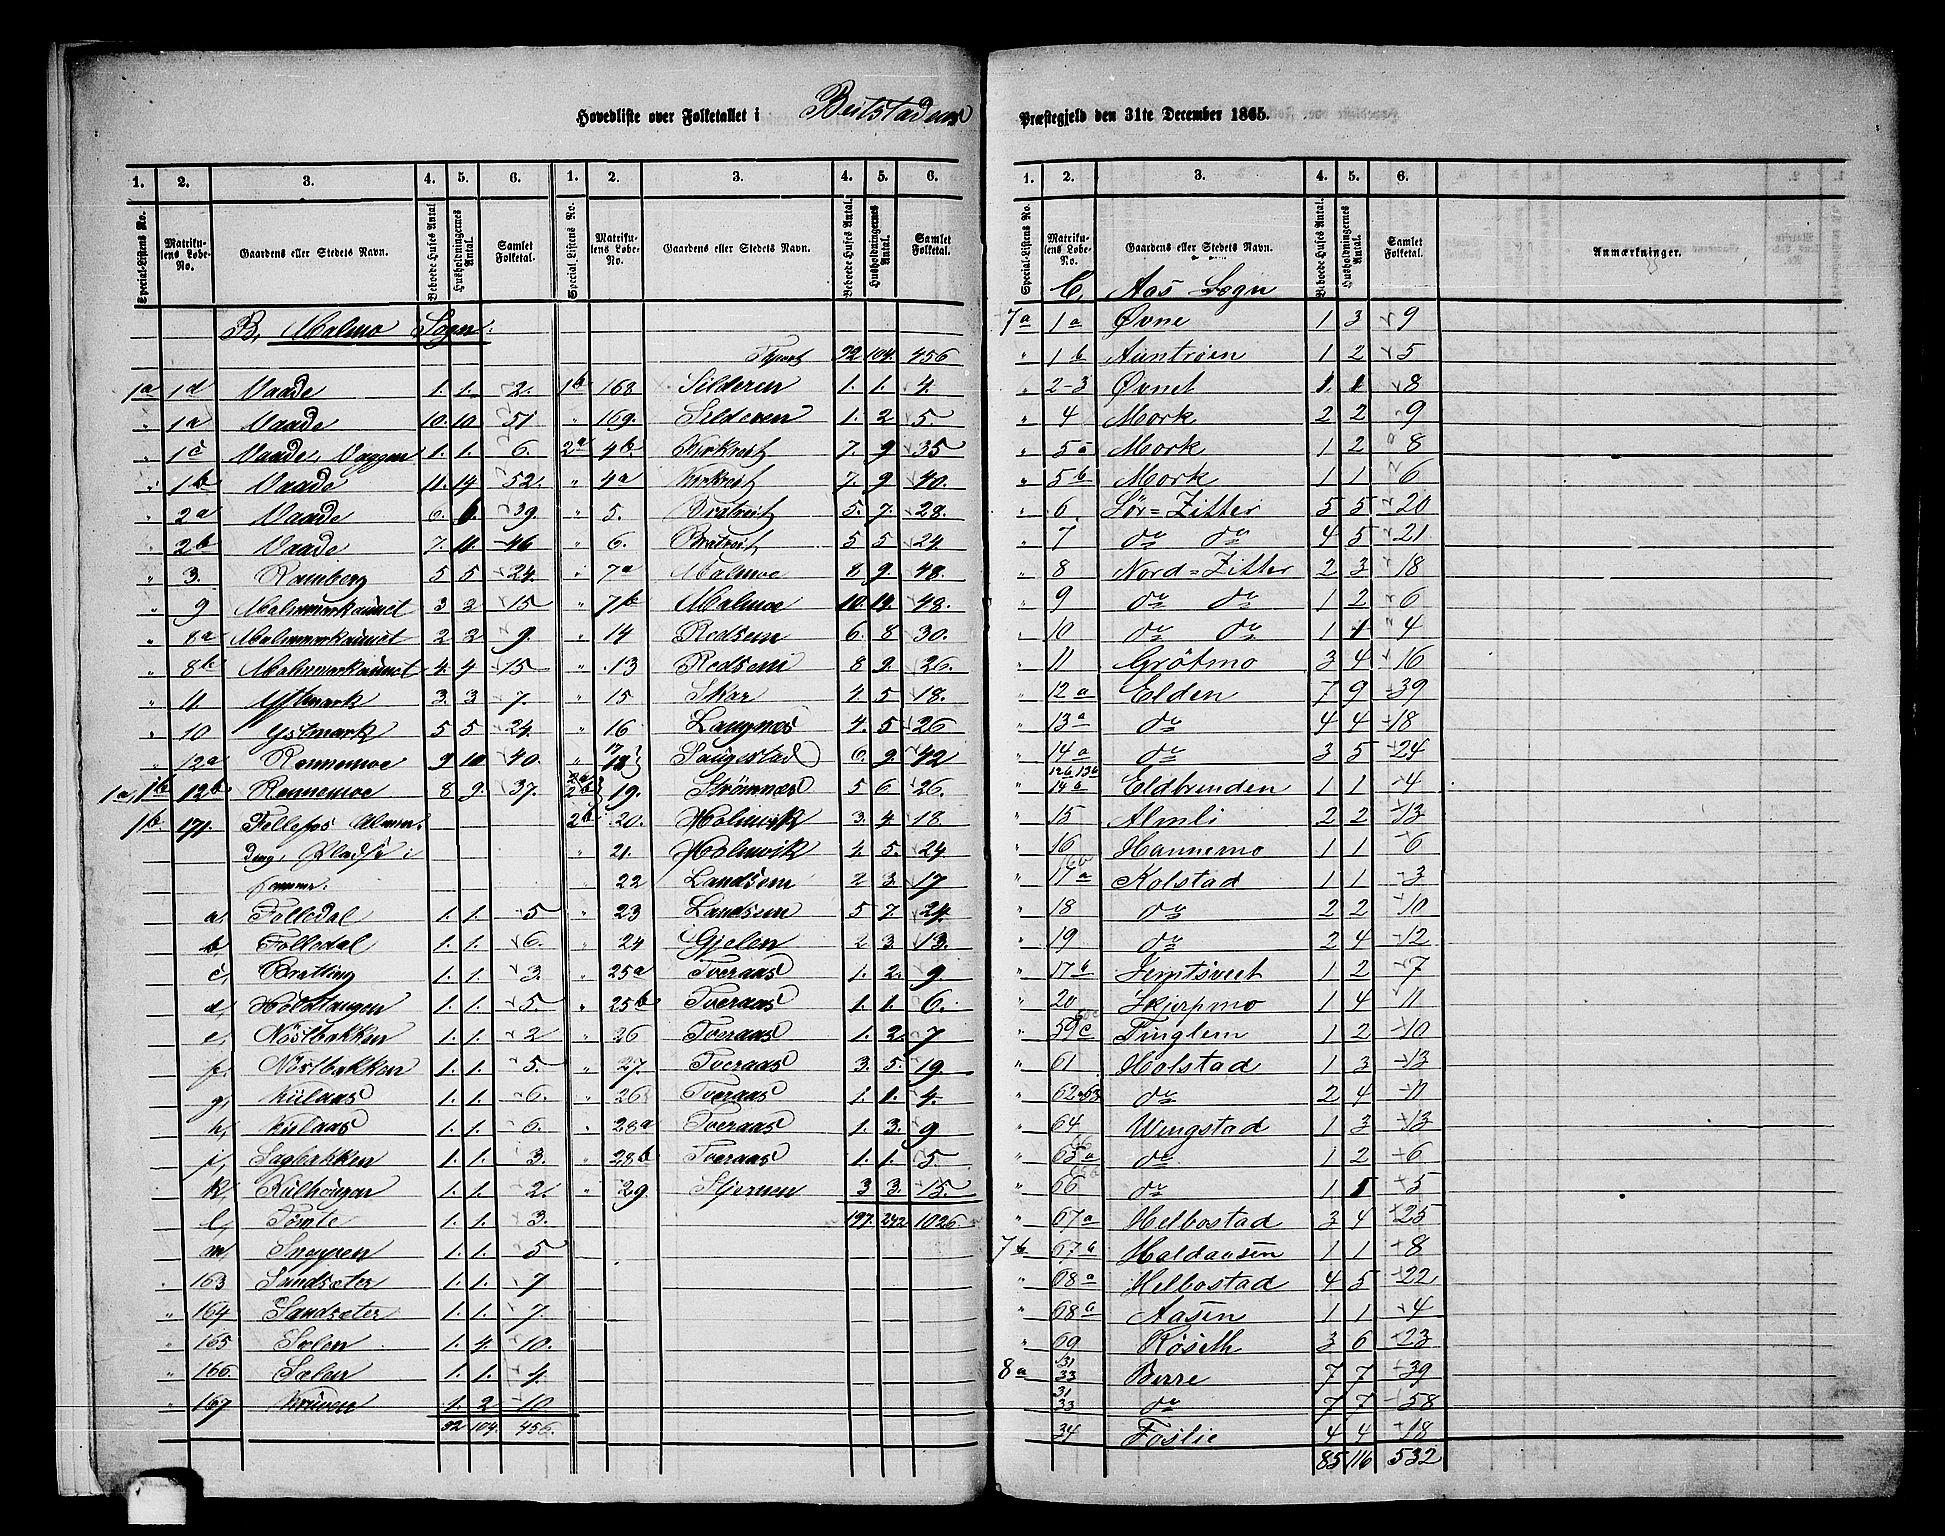 Hovedliste over Folketallet i Beitstadens
1. 2. 3. 4. 5. 6. 1. 2. 3. 4. 5. 6.
Special-Listens No. Matrikulens Løbe-No. Gaardens eller Stedets Navn. Beboede Huses Antal Husholdningernes Antal. Samlet Folketal. Special Listens No. Matrikulens Løbe-No. Gaardens eller Stedets Navn. Beboede Huses Antal. Husholdningernes Antal Samlet Folketal.
B, Malmo Sogn.
1a 1d Vaade 1. 1. 2.
" 1a Vaade 10. 10 51
" 1c Vaade, Vaggen 1. 1. 6.
" 1b Vaade 11. 14 52.
" 2a Vaade 6. 6. 39.
" 2b Vaade 7. 11. 46
" 3. Ramberg 5 5 24.
" 9 Malmmarkaunet 3 3 15
" 8a Malmmarkaunet 2 3 9.
" 8b Malmmarkaunet 4. 4 15
" 11 Ystmark 3. 3 7.
" 10 Ystmark 5 5 24.
" 12a Rennemoe 9 10 40.
1a, 1b 12b Rennemoe 8 9. 37.
1b. 171. Follafos
Pladse i
a, Folledal 1. 1. 5
b, Folledal 1. 1. 6.
c, Bratting 1. 1. 3.
d, Holdtangen 1. 1. 5.
e, Nöstbakken 1. 1. 2
f, Nöstbakken 1. 1. 5.
g, Kulaas 1. 1. 6.
h, Kulaas 1. 1. 6.
i, Sagbakken 1. 1. 3.
k, Kulhaugen 1. 1. 2.
l, Tömte 1. 1. 3.
m Sneppen 1. 1. 5
" 163 Sandsæter 1. 1. 7
" 164 Sandsæter 1. 1. 7.
" 165 Solen 1. 4. 10.
" 166. Solen 1. 1. 4.
" 167 1. 2 10
92 104. 456.
Tsport 92 104. 456
1b 168 Selderen 1. 1. 4.
" 169. Selderen 1. 2 5.
2a 4b. Kirkreit 7. 9 35
" 4a Kirkreit 7. 9. 40.
" 5. Bratreit 5. 7. 28.
" 6. Bratreit 5 5 24.
" 7a Malmoe 8 9. 48.
" 7b Malmoe 10. 13. 48.
" 14 Rodsem 6. 8 30.
" 13 Rodsem 8 9. 26.
" 15 Skar 4. 5 18.
" 16 Langnes 4. 5 26
17 18 Saugestad 6. 9. 42
2a 2b 19. Strömnæs 5 6 26.
2b 20. Holmvik 3. 4 18.
" 21. Holmvik 4. 5. 24
" 22 Landsem 2 3. 17
" 23 Landsem 5 7. 24.
" 24 Gjelen 2 3. 13.
" 25a Tveraas 1. 2. 9
" 25b Tveraas 1. 1. 6.
" 26 Tveraas 1. 2. 7
" 27. Tveraas 3. 5. 19.
" 26 Tveraas 1. 1. 4.
" 28a Tveraas 1. 3. 9
" 28b Tveraas 1. 1. 5.
" 29 Stjernen 3 3. 15.
197. 242 1026.
Præstegjeld den 31te December 1865.
1. 2. 3. 4. 5. 6.
Special-Listens No. Matrikulens Løbe-No. Gaardens eller Stedets Navn. Beboede Huses Antal. Husholdningernes Antal. Samlet Folketal. Anmærkninger.
C, Aas Sogn
7a 1a Øvne 1 3 9
" 1b Auntrøen 1 2 5
" 2-3 Øvnet 1 1 8
" 4 Mork 2 2 9
" 5a Mork 1 2 8
" 5b Mork 1 1 6
" 6 Sör=Zitter 5 5 20
" 7 do do 4 5 21
" 8 Nord=Zitter 2 3 18
" 9 do do 1 2 6
" 10 do do 1 1 4
" 11 Grötmo 3 4 16
" 12a Elden 7 9 39
" 13a do 4 4 18
" 14a do 3 5 24
" 12b 13b 14a Eldbrenden 1 1 4
" 15 Almli 2 2 13
" 16 Hannemo 1 1 6
" 17a Kolstad 1 1 3
" 18 do 2 2 10
" 19 do 2 4 12
" 17b Jemtsveet 1 2 7
" 20 Skjerpmo 1 4 11
" 59c Tinglem 1 2 10
" 61 Holstad 1 3 13
" 62.63 do 2 4 11
" 64 Wengstad 1 3 13
" 65a do 1 2 6
" 66 do 1 1 5
" 67a Helbostad 3 4 25
7b 67a Haldaasen 1 1 8
" 68a Helbostad 4 5 22
" 68a Aasen 1 1 4
" 69 Röseth 3 6 23
8a 31 33 Berre 7 7 39
31 33 do 7 7 58
34 Foslie 4 4 18
85 116 532